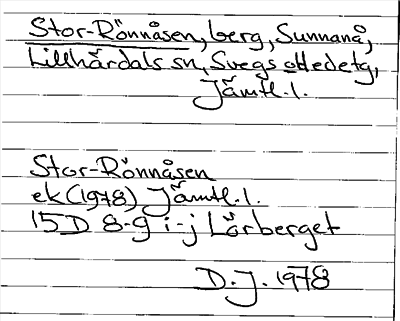 Stor-Rönnåsen, berg, Sunnanå,
Lillhärdals sn, Svegs
Jämtl. l.
Stor-Rönnåsen
ek (1978) Jämtl. l.
15D 8-9 i-j Lörberget
D. J. 1978